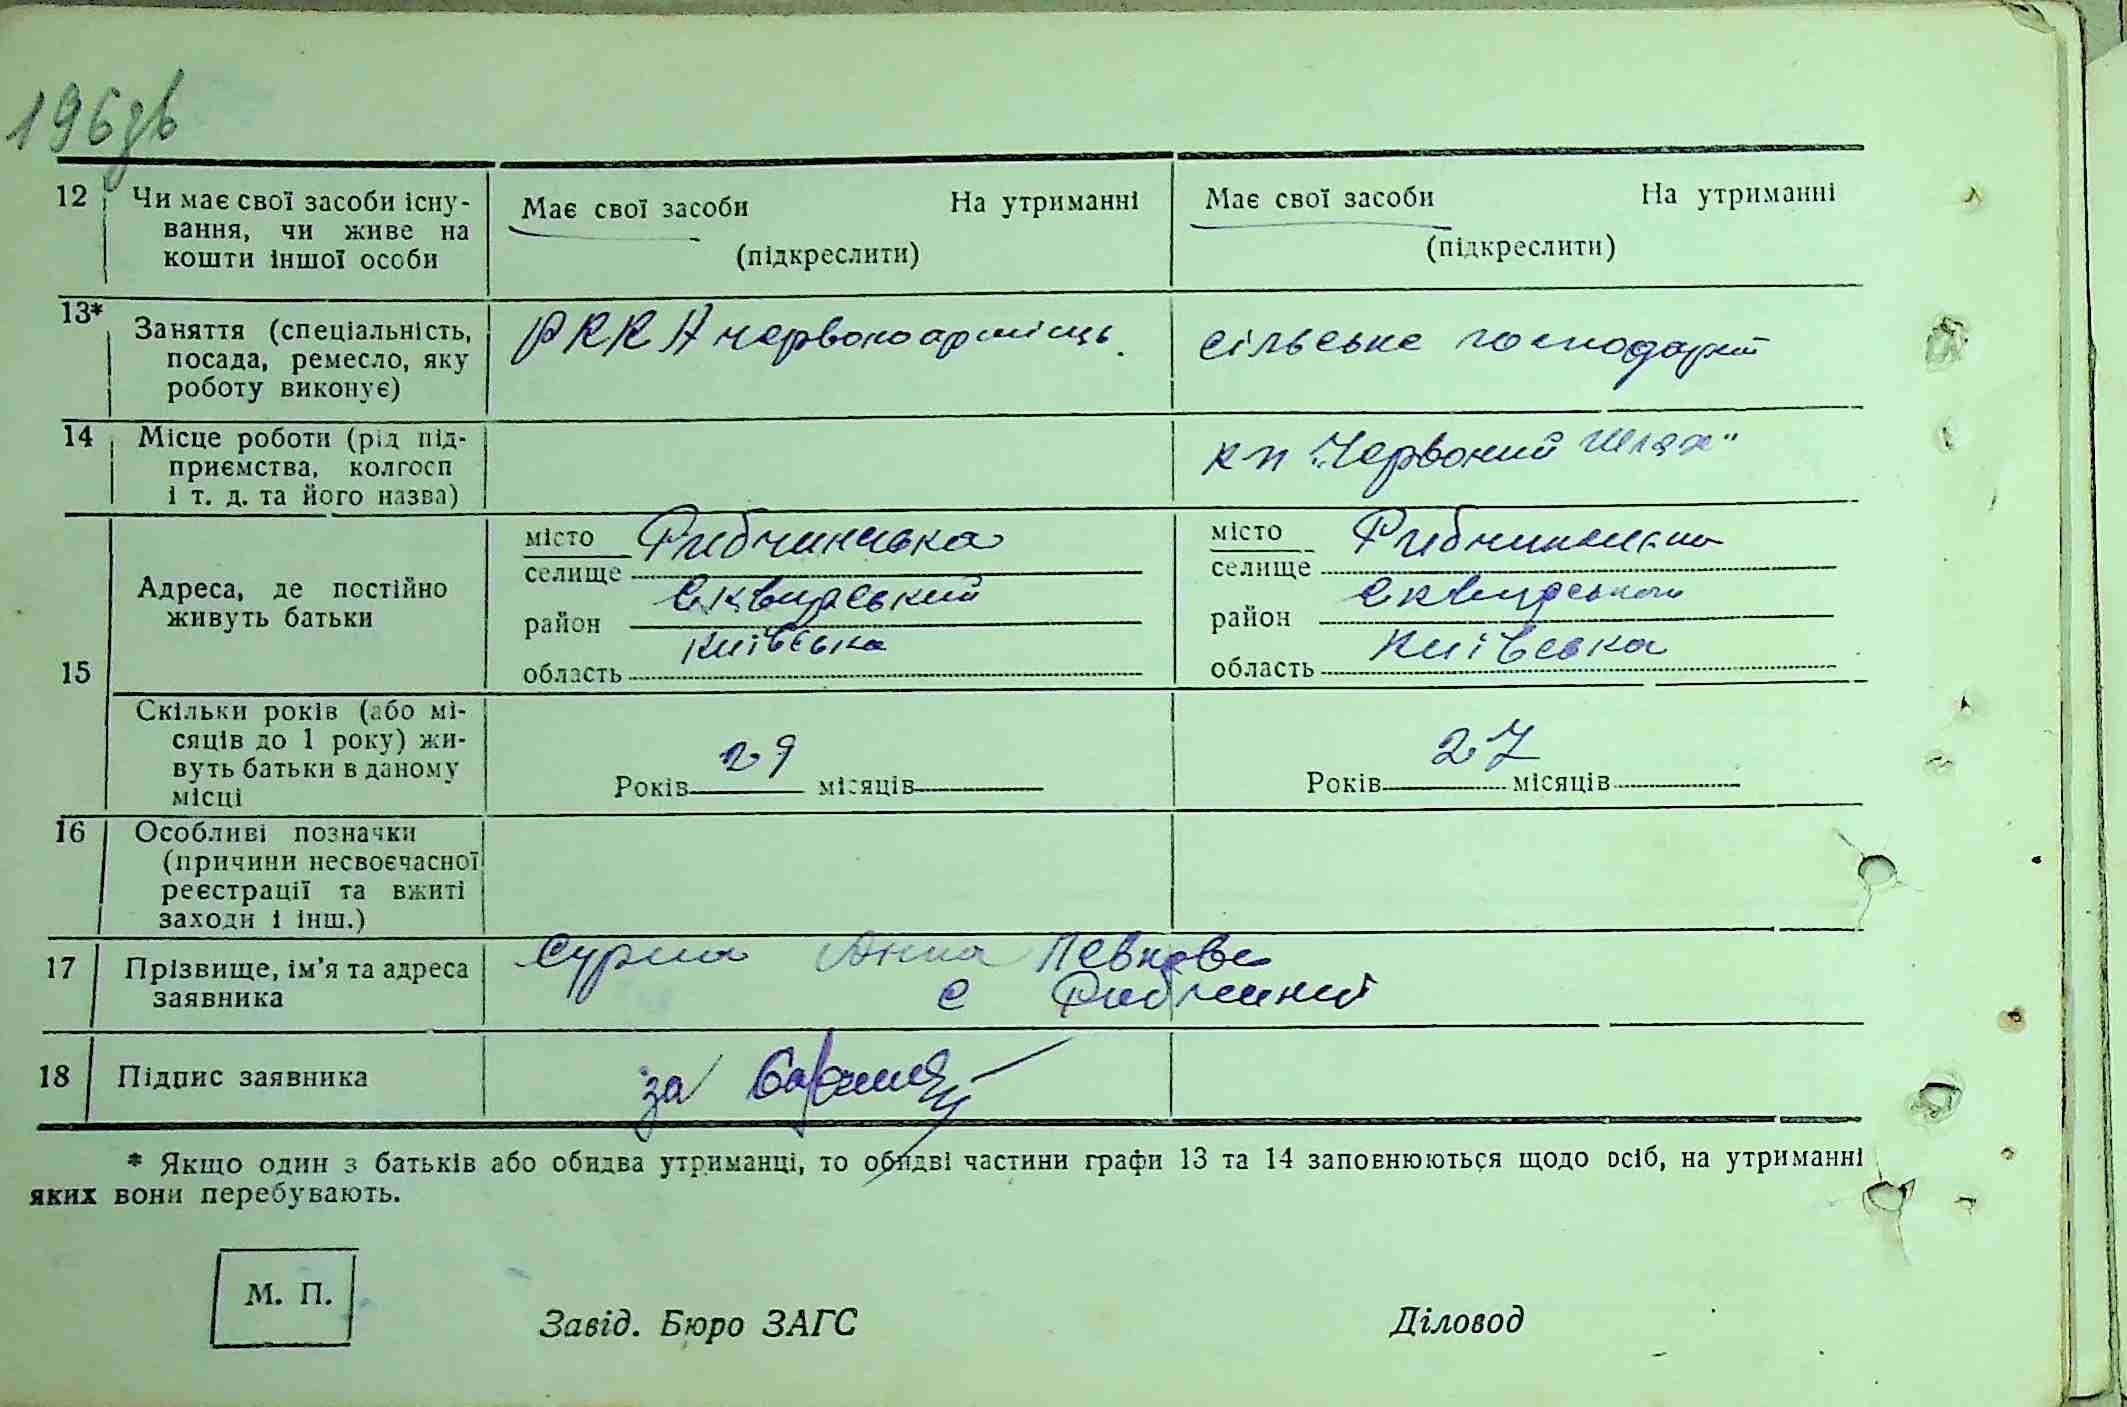 196зв
12 Чи має свої засоби існу-
вання, чи живе на
кошти іншої особи
Має свої засоби На утриманні
(підкреслити)
Має свої засоби На утриманні
(підкреслити)
13* Заняття (спеціальність,
посада, ремесло, яку
роботу виконує)
РККА червоноармієць.
сільське господарий
14 Місце роботи (рід під-
приємства, колгосп
і т. д. та його назва)
кп "Червоний Шлях"
15 Адреса, де постійно
живуть батьки
місто
селище
район Сквирський
область Київська
місто
селище
район Сквирський
область Київська
Скільки років (або мі-
сяців до 1 року) жи-
вуть батьки в даному
місці
Років 29 місяців
Років 27 місяців
16 Особливі позначки
(причини несвоєчасної
реєстрації та вжиті
заходи і інш.)
17 Прізвище, ім'я та адреса
заявника
Анна
с
18 Підпис заявника
за
* Якщо один з батьків або обидва утриманці, то обидві частини графи 13 та 14 заповнюються щодо осіб, на утриманні
яких вони перебувають.
М. П.
Завід. Бюро ЗАГС Діловод